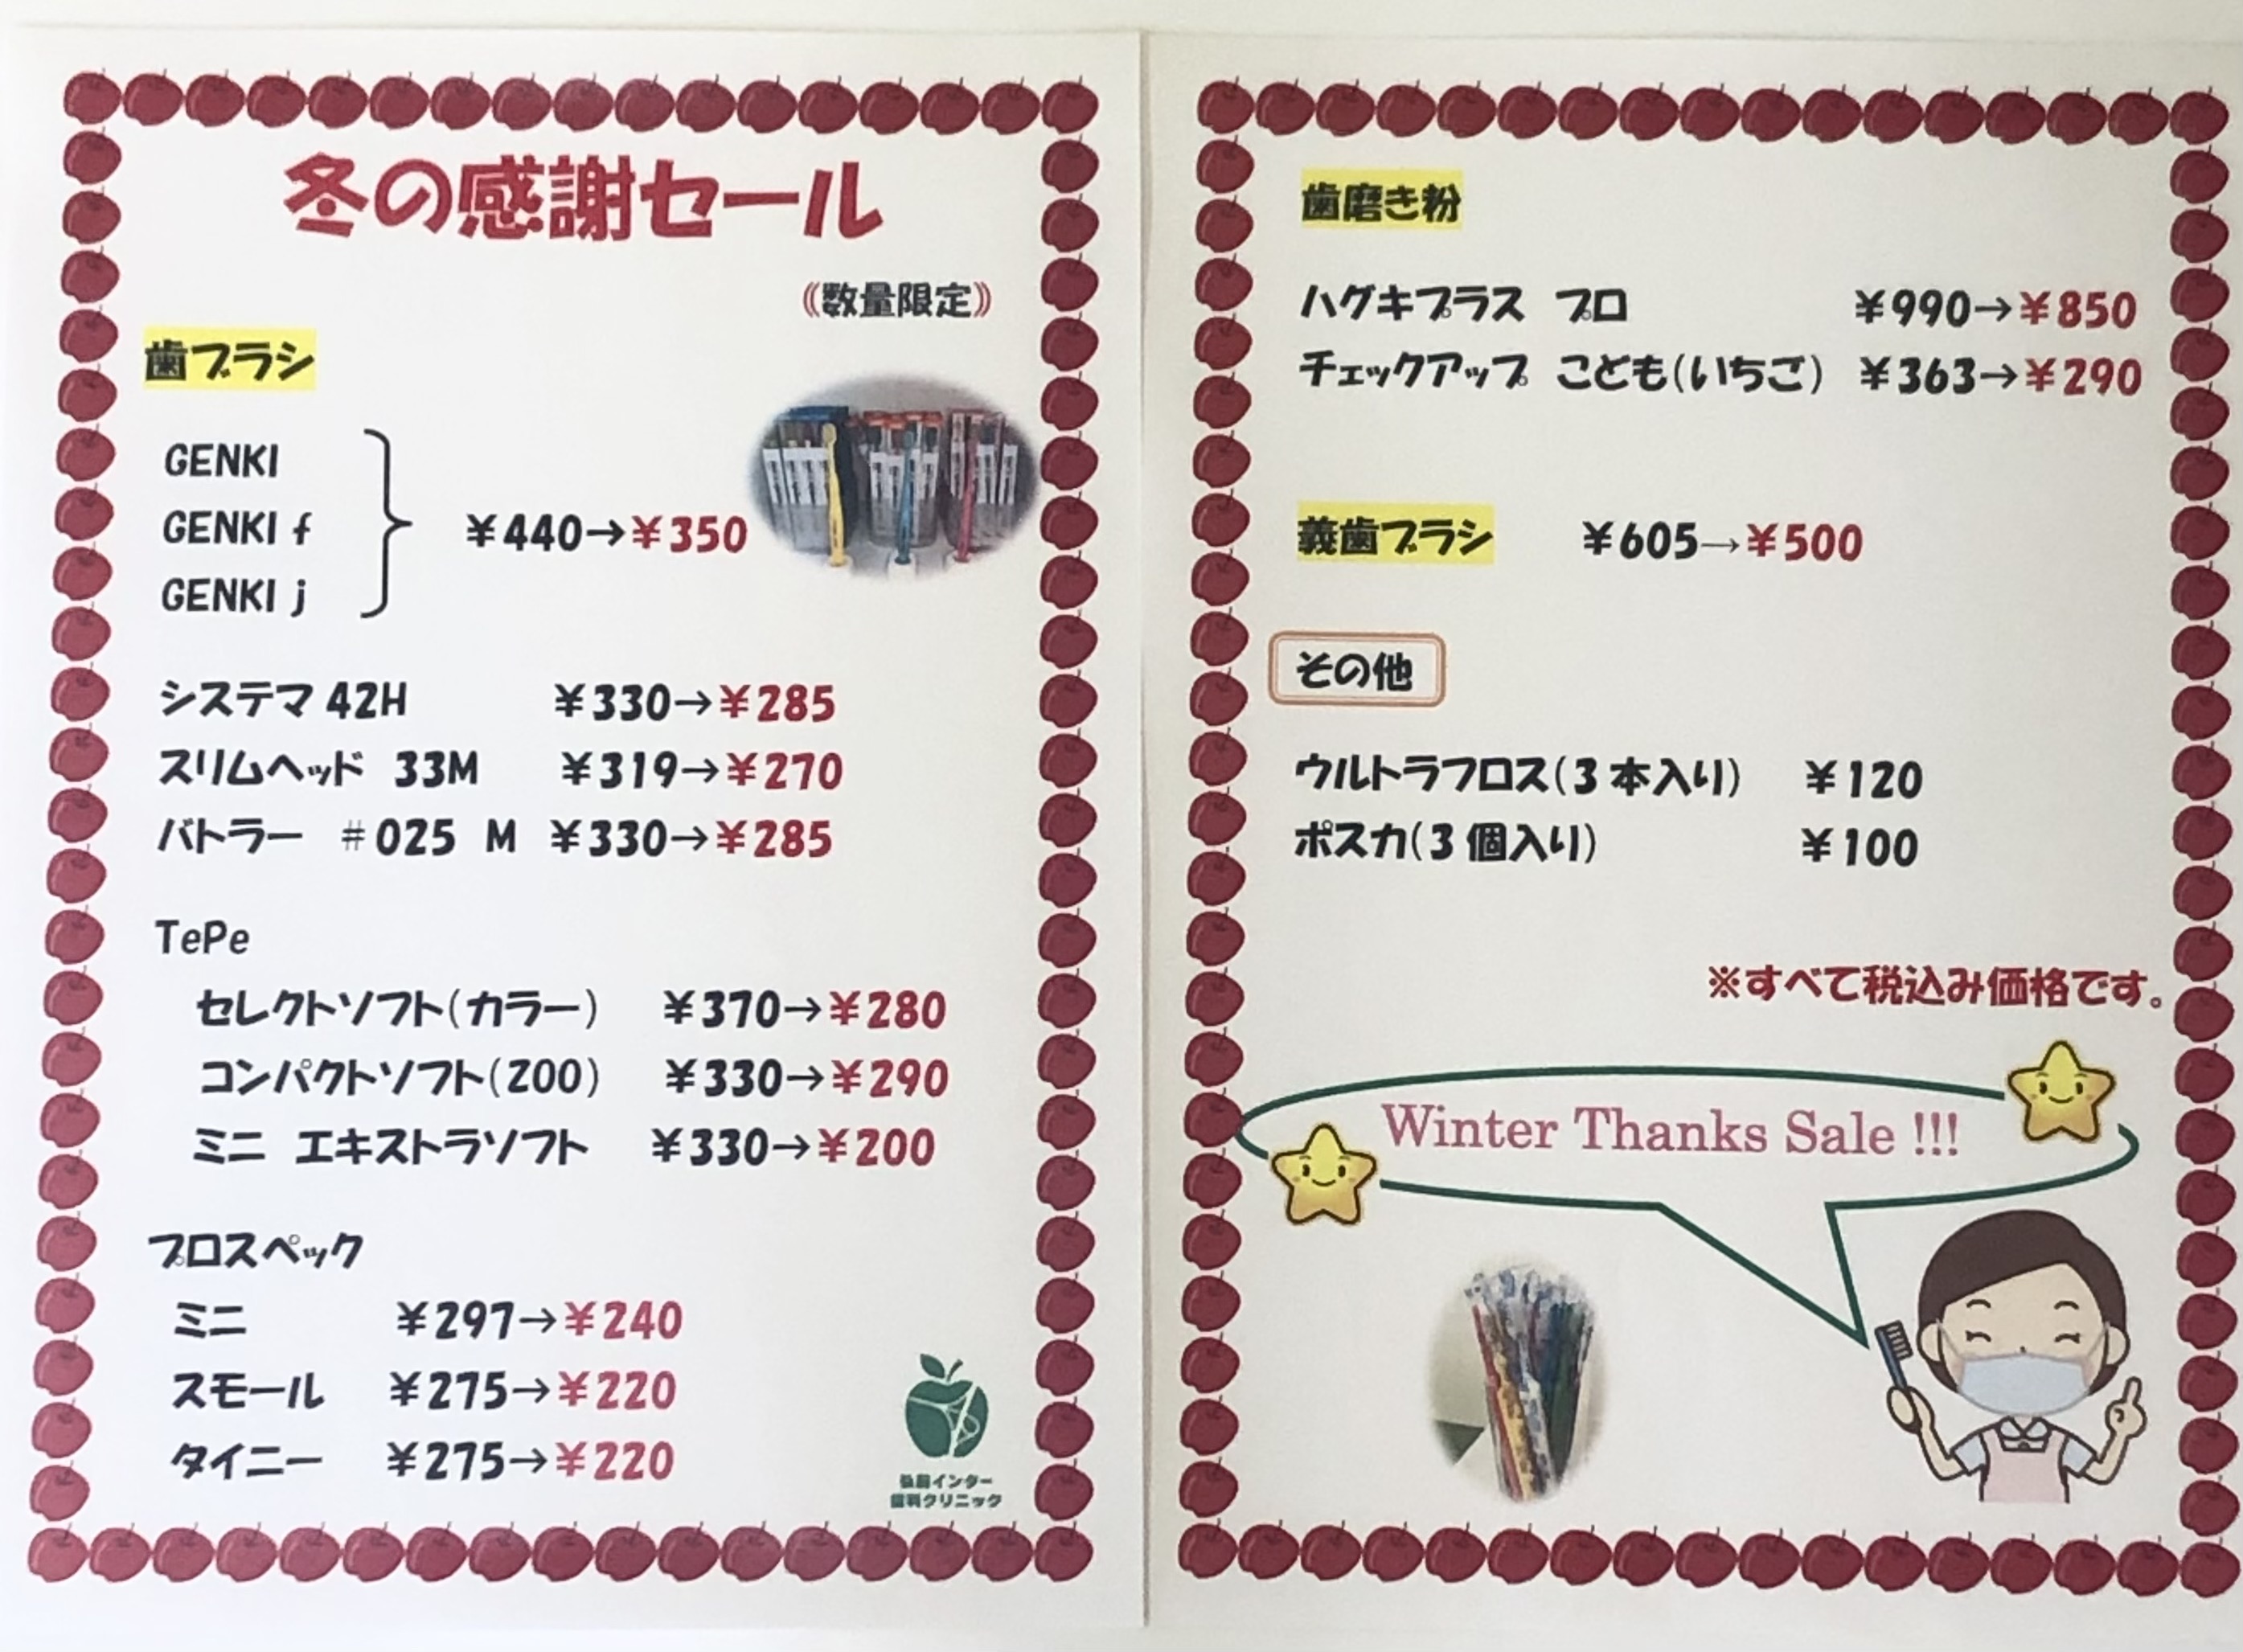 冬の感謝セール
《数量限定》
歯ブラシ
GENKI
GENKI f
GENKI j
¥440→¥350
システマ 42H ¥330→¥285
スリムヘッド 33M ¥319→¥270
バトラー #025 M ¥330→¥285
TePe
セレクトソフト(カラー) ¥370→¥280
コンパクトソフト(ZOO) ¥330→¥290
ミニ エキストラソフト ¥330→¥200
プロスペック
ミニ ¥297→¥240
スモール ¥275→¥220
タイニー ¥275→¥220
弘前インター
歯科クリニック
歯磨き粉
ハグキプラス プロ ¥990→¥850
チェックアップ こども(いちご) ¥363→¥290
義歯ブラシ ¥605→¥500
その他
ウルトラフロス(3本入り) ¥120
ポスカ(3個入り) ¥100
※すべて税込み価格です。
Winter Thanks Sale !!!